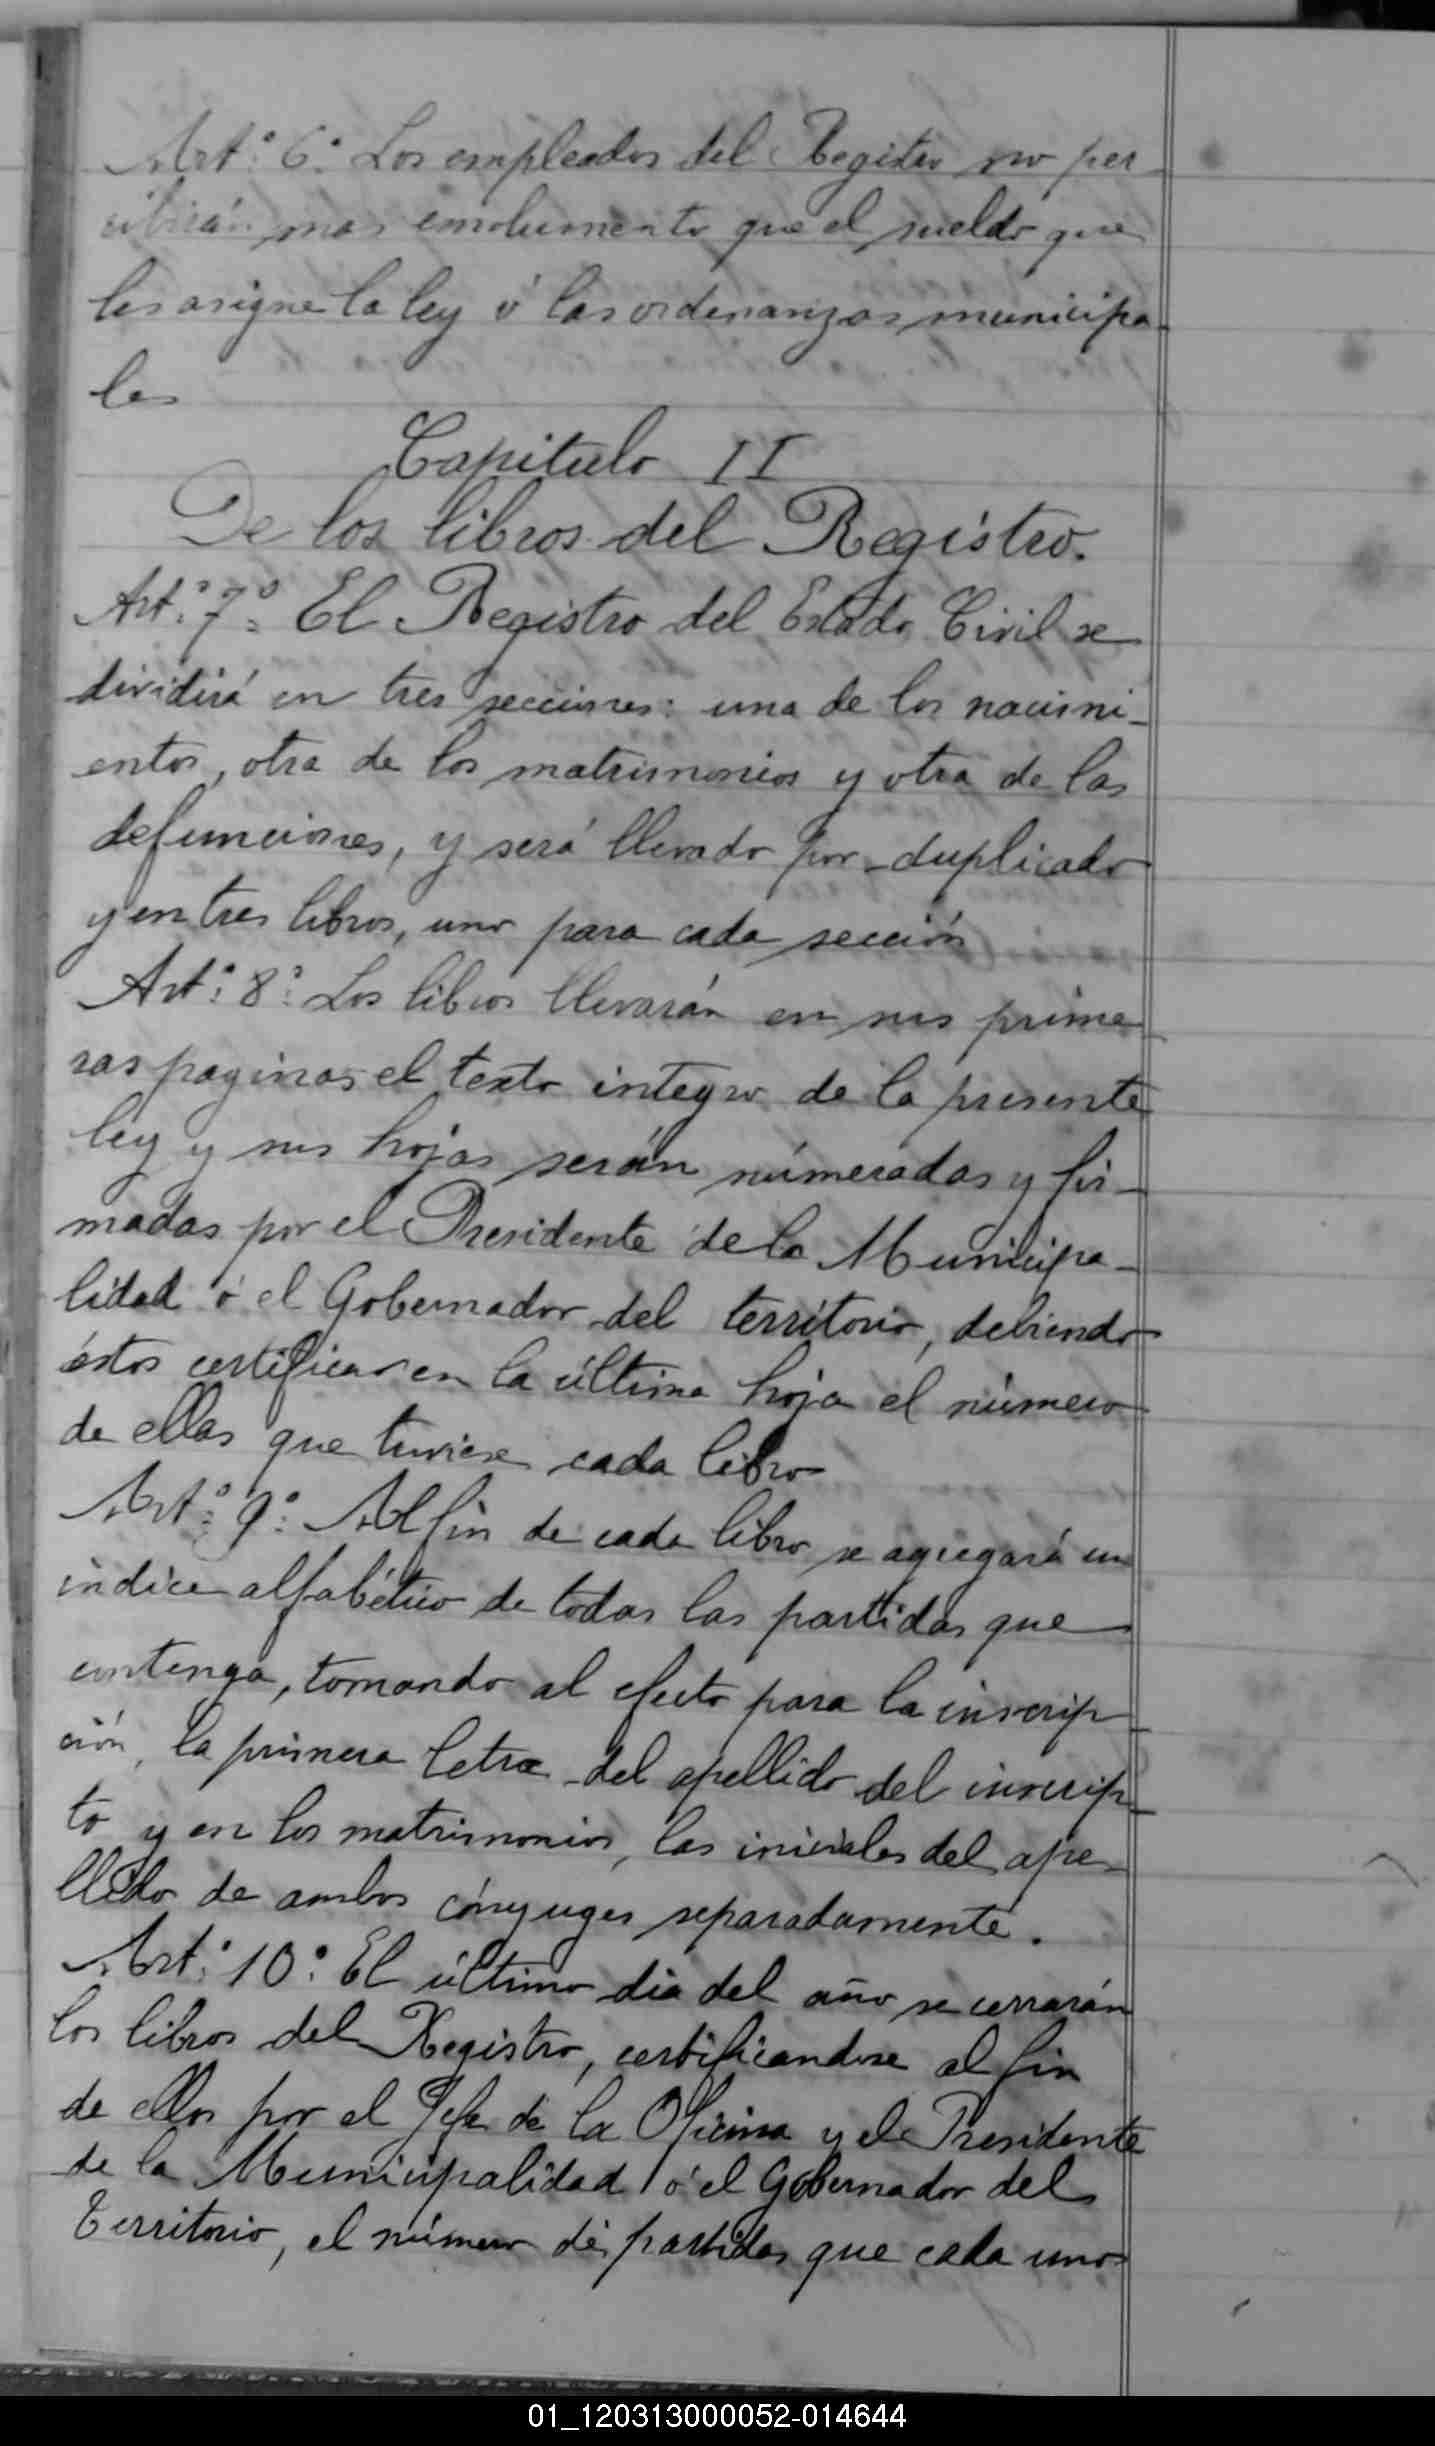 Art.º 6.º Los empleados del Registro no per
cibirán mas emolumento que el sueldo que
les asigne la ley ó las ordenanzas municipa-
les
Capitulo II
De los libros del Registro.
Art.º 7.º El Registro del Estado Civil se
dividirá en tres secciones: una de los nacimi-
entos, otra de los matrimonios y otra de las
defunciones, y será llevado por duplicado
y en tres libros, uno para cada sección
Art.º 8.º Los libros llevarán en sus prime
ras paginas el texto integro de la presente
ley y sus hojas serán númeradas y fir-
madas por el Presidente de la Municipa-
lidad ó el Gobernador del territorio, debiendo
éstos certificar en la última hoja el número
de ellas que tuviese cada libro
Art.º 9.º Al fin de cada libro se agregará un
indice alfabético de todas las partidas que
contenga, tomando al efecto para la inscrip-
ción, la primera letra del apellido del inscrip-
to y en los matrimonios, las iniciales del ape-
llido de ambos cónyuges separadamente.
Art.º 10.º El último dia del año se cerrarán
los libros del Registro, certificandose al fin
de ellos por el Jefe de la Oficina y el Presidente
de la Municipalidad ó el Gobernador del
Territorio, el número de partidas que cada uno
01_120313000052-014644